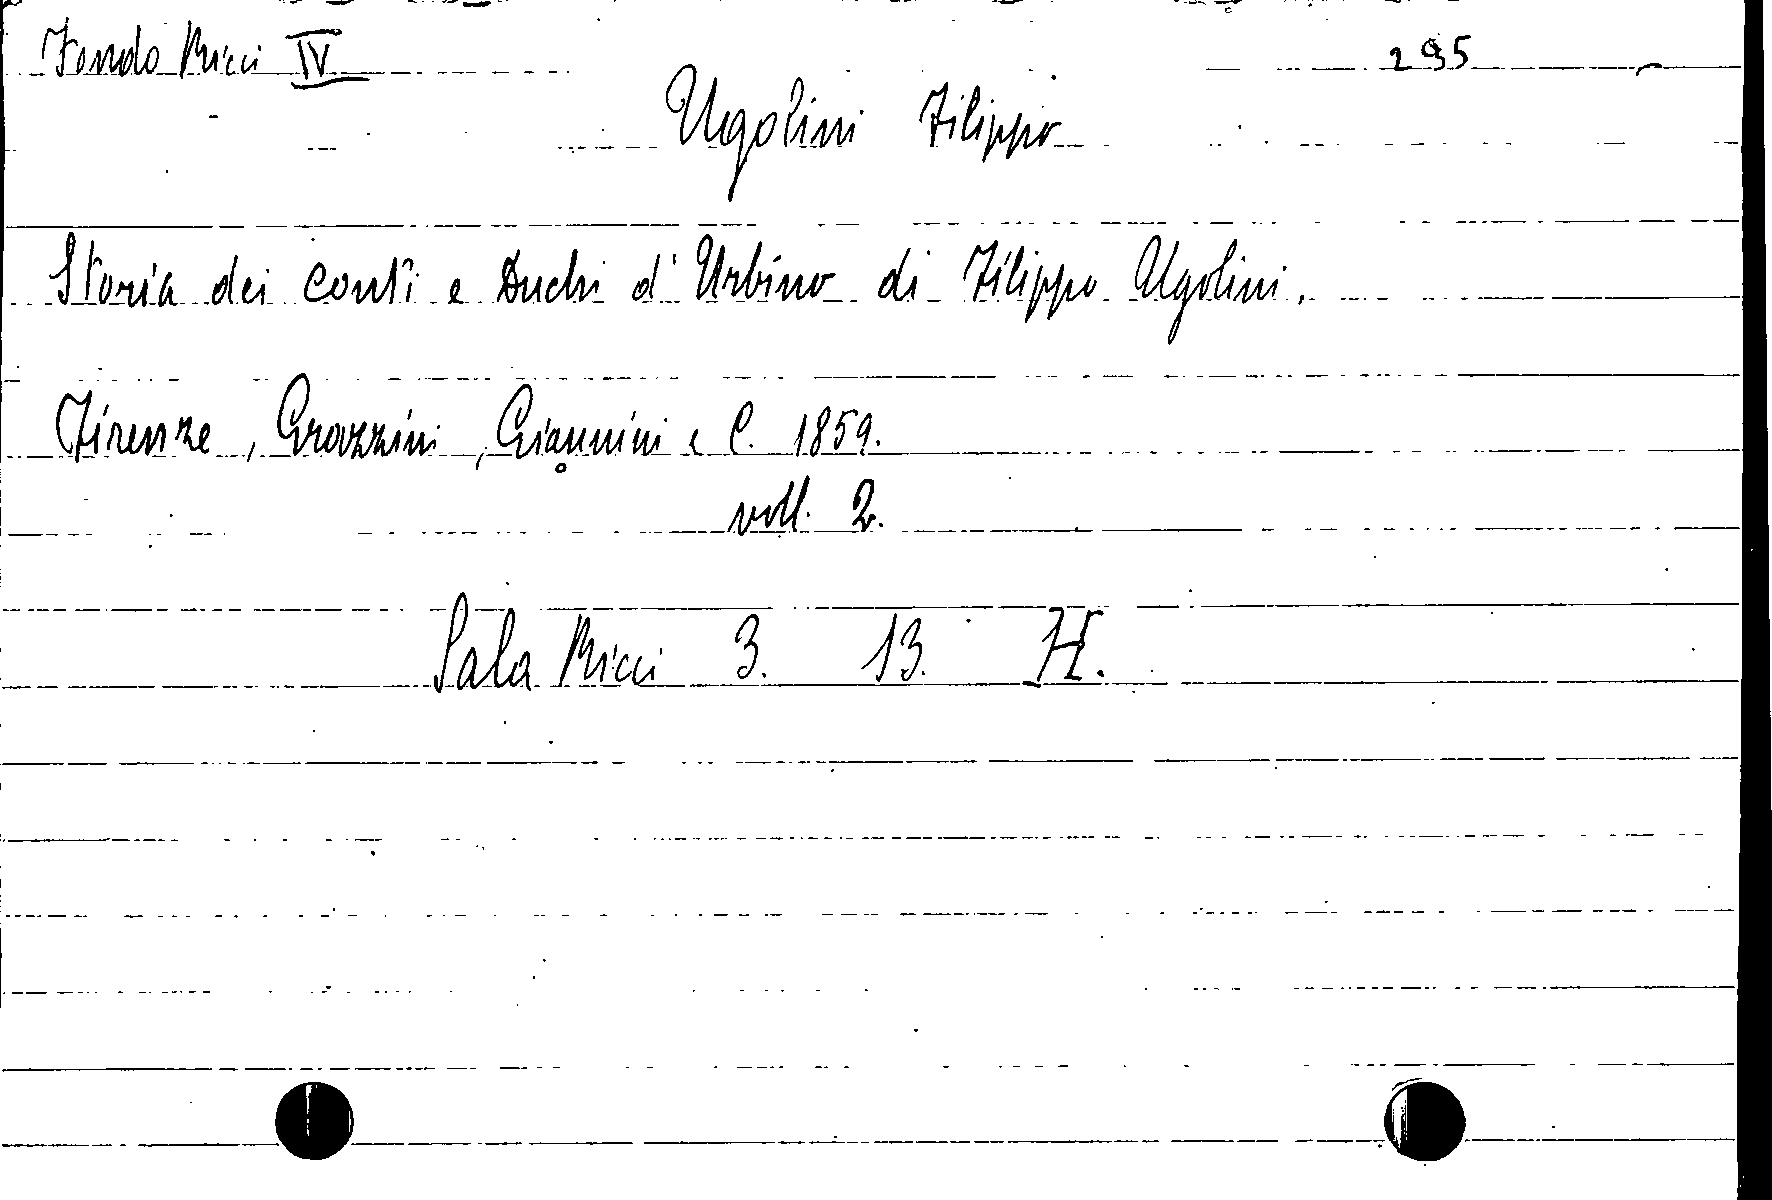 Fondo Ricci IV 295
Ugolini Filippo
Storia dei Conti e Duchi d'Urbino di Filippo Ugolini.
Firenze, Grazzini, Giannini e C. 1859.
voll. 2.
Sala Ricci 3. 13. H.